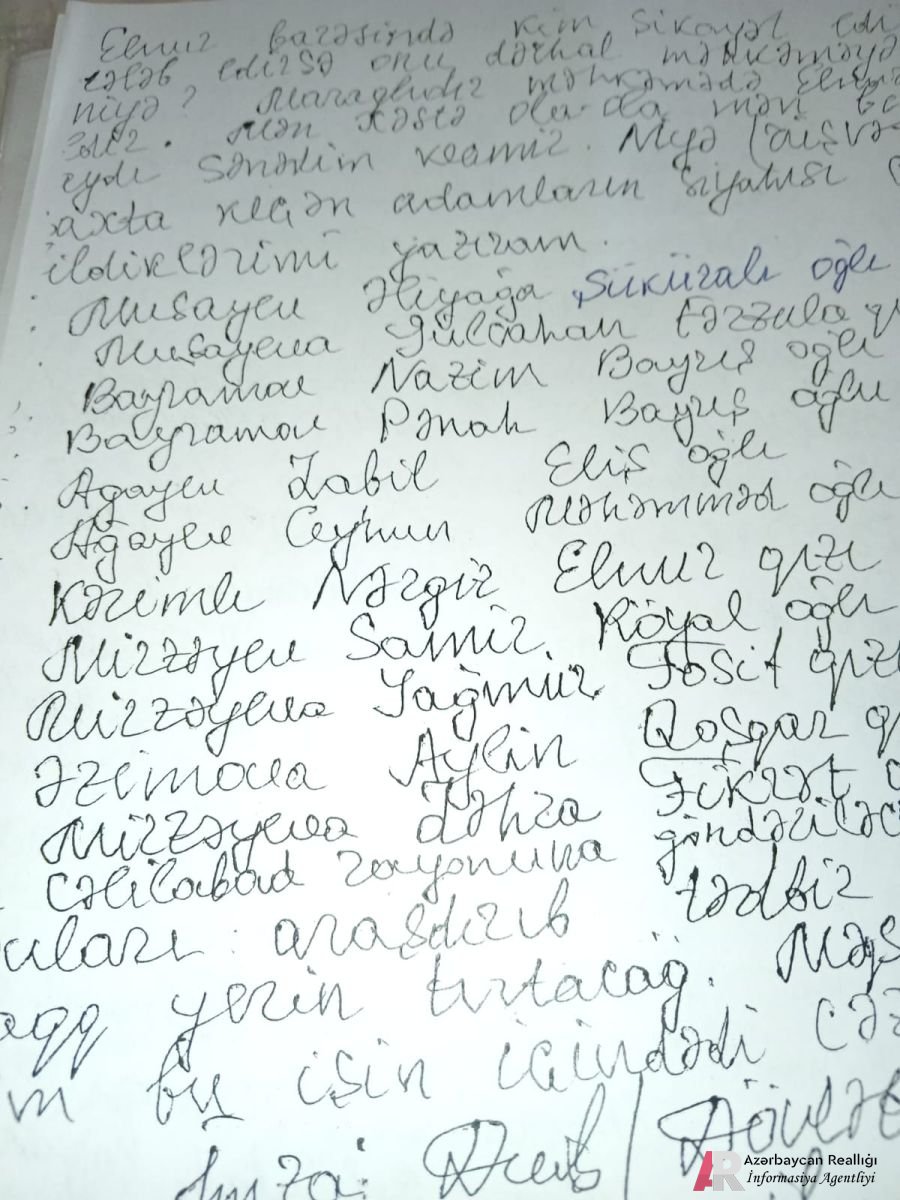 Elnur barəsində kim şikayət edi
tələb edirsə onu dərhal məhkəməyə
niyə? Maraqlıdır məhkəmədə Elnur
Mən xəstə ola-ola mən
eydi sənədim keçmir. Niyə
axta keçən adamların siyahısı
ildiklərimi yazıram.
Musayev Əliyağa Şüküralı oğlu
Musayeva Gülcahan Fərzulla
Bayramov Nazim Bayrış oğlu
Bayramov Pənah Bayrış oğlu
Ağayev Zabil Eliş oğlu
Ağayev Ceyhun Məhəmməd oğlu
Kərimli Nərgiz Elnur qızı
Mirzəyev Samir Röyal oğlu
Mirzəyeva Yağmur Fosif qızı
Əzimova Aylin Qoşqar q
Mirzəyeva Zəhra Fikrət
Cəlilabad rayonuna göndəriləc
uları araşdırıb tədbir
aqq yerin tutacağ. Məs
m bu işin içindədi Cəz
İmza:
Azərbaycan Reallığı
İnformasiya Agentliyi